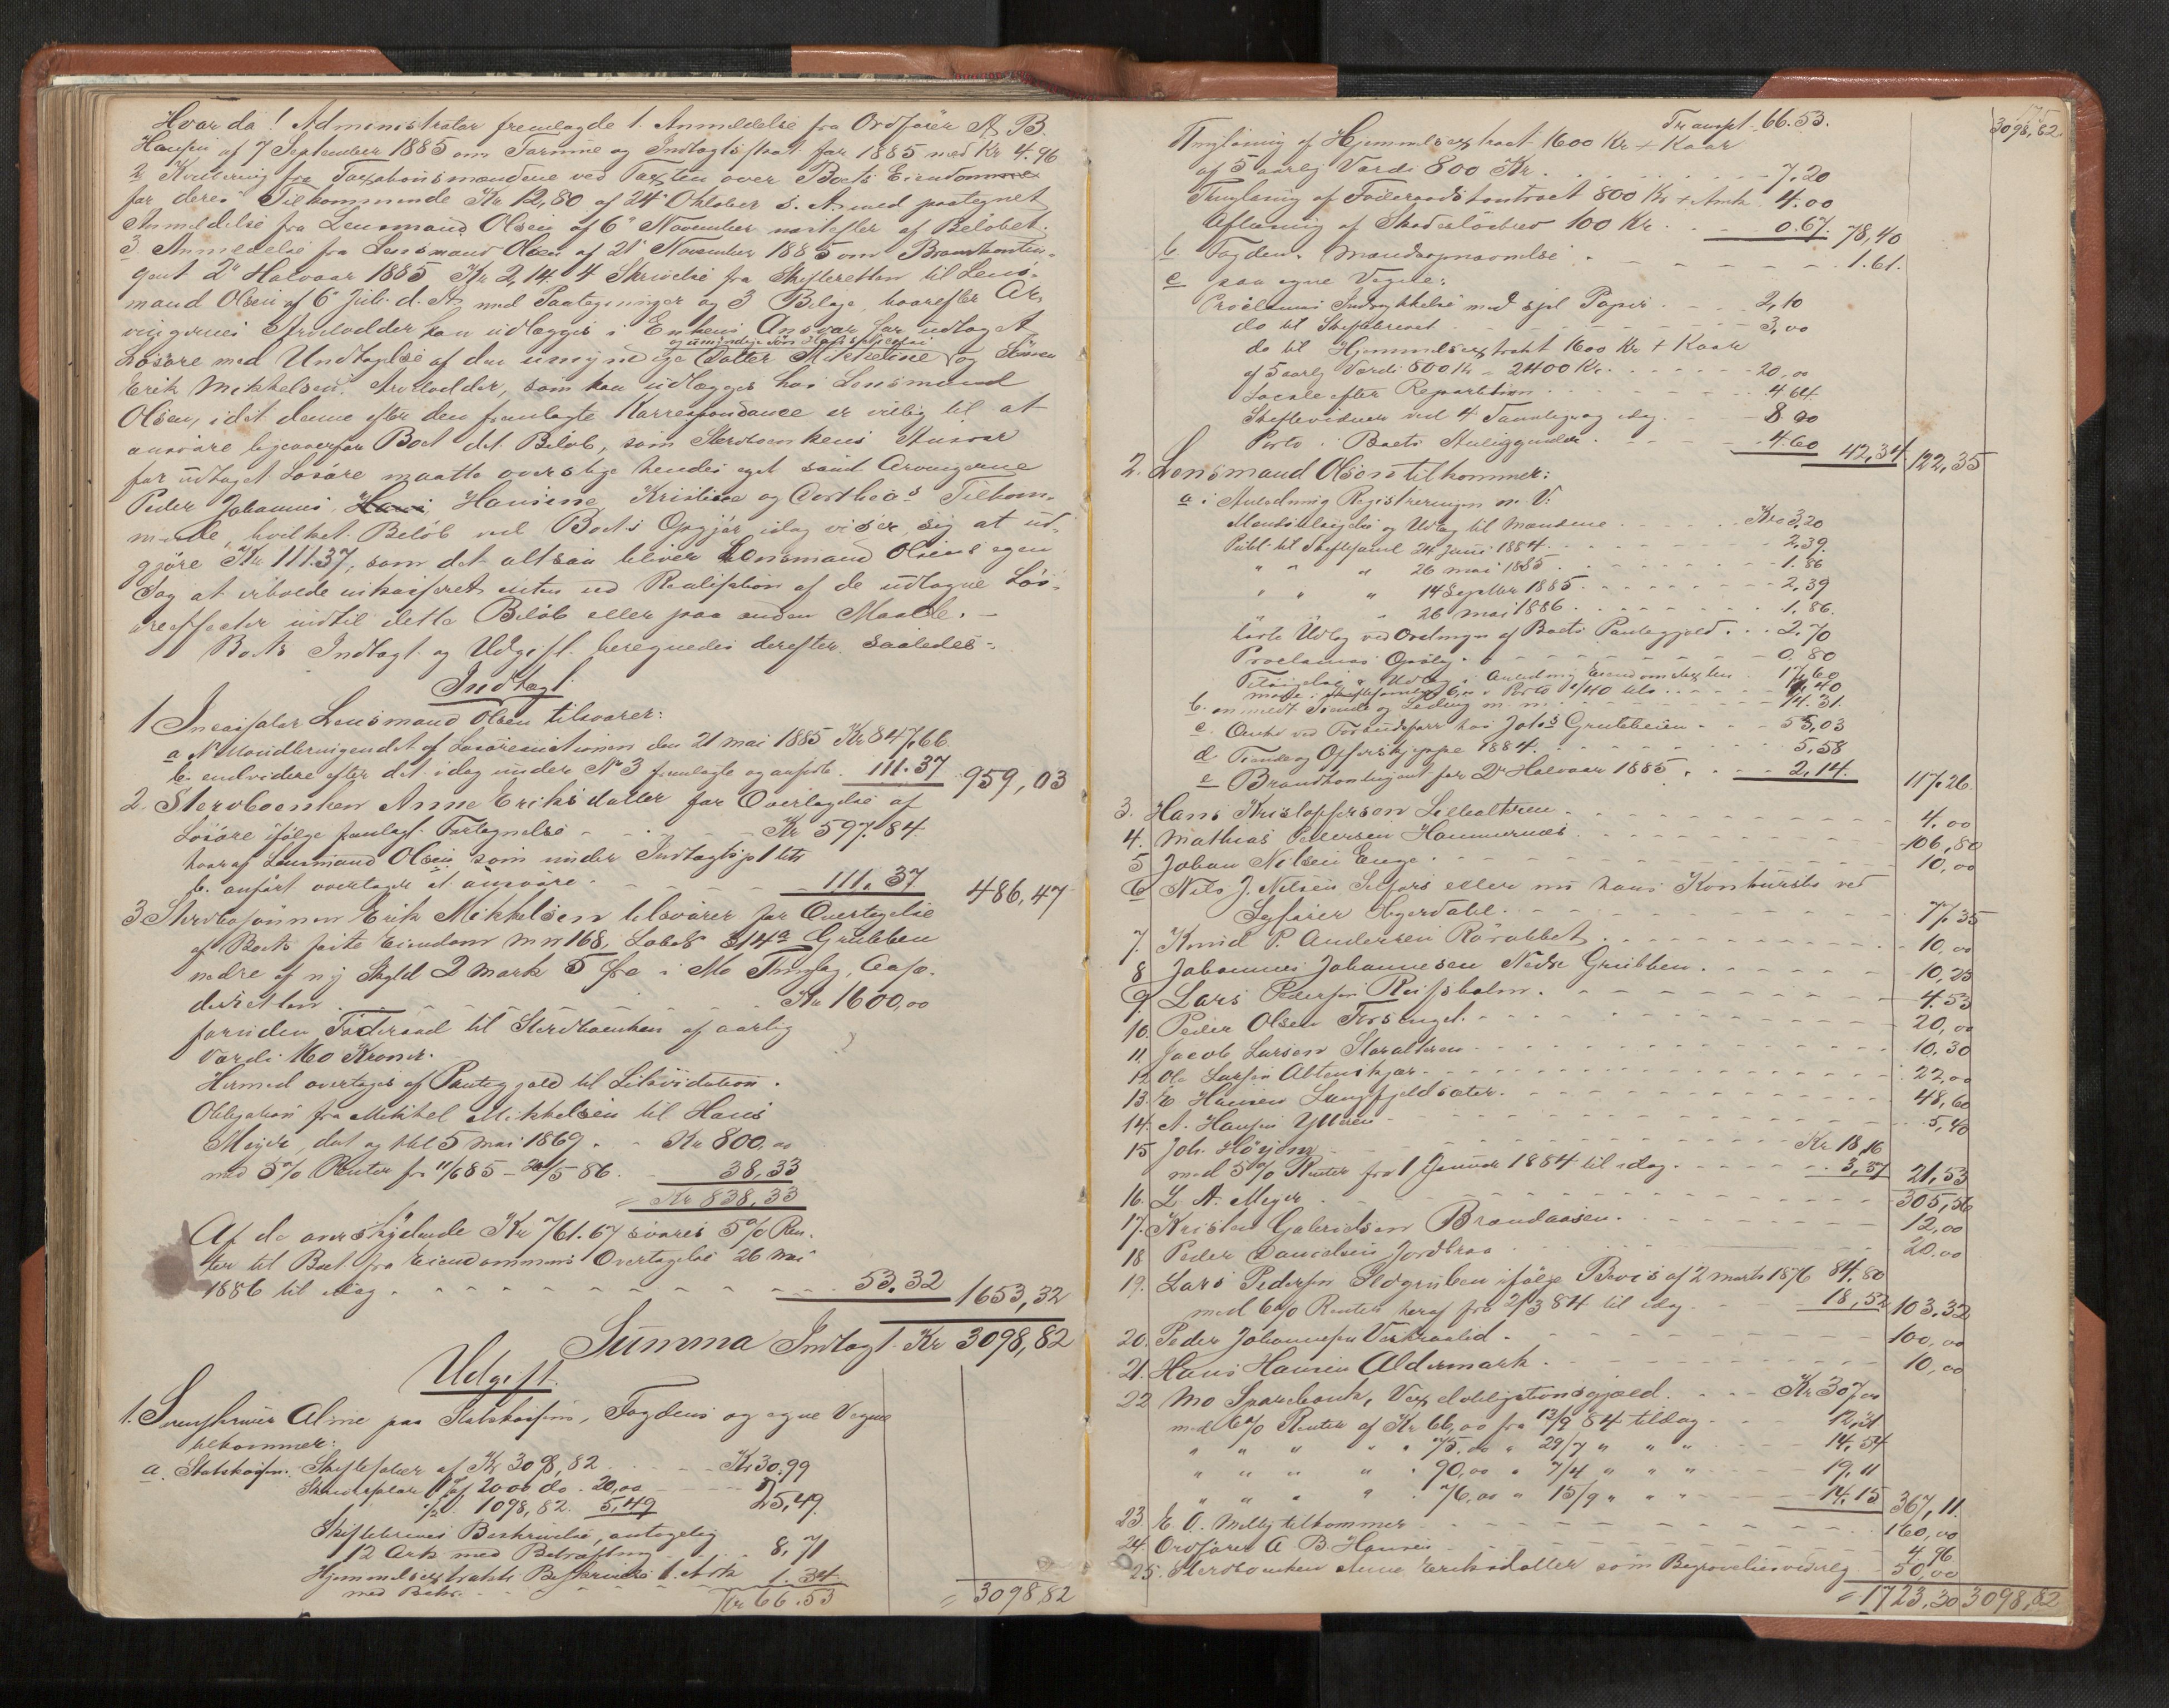 Hvor da! Administrator fremlagde 1. Anmeldelse fra Ordfører A. B.
Hansen af 7 September 1885 om Farmue og Indtagtsskat for 1885 med Kr 4.96
2 Kvittering fra Taxationsmændene ved Taxten over Boets Eiendomme
for deres Tilkommende Kr 12,80 af 24 Oktober s. A. med paategnet
Anmeldelse fra Lensmand Olsen af 6 November næstefter af Beløbet.
3 Anmeldelse fra Lensmand Olsen af 21 November 1885 om Brandkontin-
gent 2 Halvaar 1885 Kr 2,14. 4 Skrivelse fra Skifteretten til Lens-
mand Olsen af 6 Juli d. A. med Paategninger og 3 Bilage, hvorefter Ar-
vingernes Arvelodder kan udlægges i Enkens Ansvar for udtaget
Løsøre med Undtagelse af den umyndige Datter Mikkeline og Sønnen
Erik Mikkelsens Arvelodder, som kan udlægges hos Lensmand
Olsen, idet denne efter den fremlagte Korrespondance er villig til at
ansvare ligeoverfor Boet det Beløb, som Stervboenkens Ansvar
for udtaget Løsøre maatte overstige hendes eget samt Arvingerne
Peder Johannes, Hansine, Kristine og Dortheas Tilkom-
mende, hvilket Beløb ved Boets Opgjør idag viser sig at ud-
gjøre Kr 111.37, som det altsaa bliver Lensmand Olsens egen
Sag at erholde inkasseret enten ved Realisation af de udtagne Løs-
øreeffecter indtil dette Beløb eller paa anden Maade. –
Boets Indtægt og Udgift beregnedes derefter saaledes:
Indtægt
1 Incassator Lensmand Olsen tilsvarer:
a Nettoudbringendet af Løsøreauctionen den 21 mai 1885 Kr 847,66
b. endvidere efter det idag under No 3 fremlagte og anførte 111.37 959,03
2. Stervboenken Anne Eriksdatter for Overtagelse af
Løsøre ifølge fremlagt Fortegnelse Kr 597.84
hvoraf Lensmand Olsen som under Indtægtspost 1 litr
b. anført overtager at ansvare 111.37 486,47
3 Stervbosønnen Erik Mikkelsen tilsvarer for Overtagelse
af Boets faste Eiendom mn 168, Løbe No 314a Grubben
nedre af ny Skyld 2 mark 5 øre i Mo Thinglag,
Kr 1600,00
foruden Føderaad til Stervboenken af aarlig
Værdi 160 Kroner.
Hermed overtages af Pantegjeld til Likvidation.
Obligation fra Mikkel Mikkelsen til Hans
Meyer, dat og thl 5 mai 1869 Kr 800,00
med 5% Renter fra 11/6 85 – 26/5 86 38,33
= Kr 838,33
Af de overskydende Kr 761.67 svares 5% Ren-
ter til Boet fra Eiendommens Overtagelse 26 mai
1886 til idag 53,32 1653,32
Summa Indtægt Kr 3098,82
Udgift.
1. Sorenskriver Alme paa Statskassens, Fogdens og egne Vegne
tilkommer:
a. Statskassen. Skifteafgift af Kr 3098,82 Kr 30.99
af 2000 do 20,00
½% 1098,82 5,49 25,49
Skiftebrevets Beskrivelse, antagelig
12 Ark med Bekræftning 8,71
Hjemmelsextrakts Beskrivelse 1 Ark
med Bekr. 1.34
Kr 66.53
= 3098,82
Transpt. 66.53. 3098,82
Thinglæsning af Hjemmelsextract 1600 Kr + Kaar
af 5 aarlig Værdi 800 Kr. 7,20
Thinglæsning af Føderaadskontract 800 Kr + Attest 4.00
Aflæsning af Skadesløsbrev 100 Kr. 0.67. 78,40
b Fogden. Mandsopnævnelse 1.61.
c paa egne Vegne:
Proclamas Indrykkelse med spl Papir 2,10
do til Skiftebrevet 3,00
do til Hjemmelsextrakt 1600 Kr + Kaar
af 5 aarlg Værdi 800 Kr = 2400 Kr. 20,00
Locale efter Repartition 4.64
Skiftevidner ved 4 Samlinger og idag 8 00
Porto i Boets Anliggender 4.60 42,34 122,35
2. Lensmand Olsen tilkommer:
a i Anledning Registreringen m. V:
Mændstilsigelse og Udlæg til mændene Kr 3,20
Publ. til Skiftesaml 24 Juni 1884 2,39
" " " 26 mai 1885 1.86
" " " 14 Septbr 1885 2,39
" " " 26 mai 1886 1,86.
havte Udlæg ved Ordningen af Boets Pantegjeld 2,70
Proclamas Opslag 0,80
Tilsigelse & Udlæg i Anledning Eiendomstaxten 17,60
c. Auke ved Forbudsforr hos Johs Grubbeien 55,03
d Tiende og Offerskjeppe 1884. 5,58
e Brandkontingent for 2 Halvaar 1885 2,14. 117.26
3. Hans Kristoffersen Lillealteren 4,00
4. Mathias Pedersen Hammernæs 106,80
5 Johan Nilsen Enge 10,00
6 Nils J. Nilsen Selfors eller nu hans Konkursbo ved
Sagfører Hegerdahl. 77.35
7. Knud P. Andersen Røvatbet 10,00
8 Johannes Johannesen Nedre Grubben. 10,25
9. Lars Pedersen Reifsholm. 4.53
10. Peder Olsen Forsenget. 20,00
11. Jacob Larsen Storalteren 10.30
12 Ole Larsen Altenskjær 22,00
13. E Hansen Langfjeldsæter. 48,60
14. A. Hansen Ytteren 5,40
15 Joh. Høyjem Kr 18,16
med 5% Renter fra 1 Januar 1884 til idag 3,37 21,53
16. L. A. Meyer 305,56
17. Kristen Gabrielsen Brandaasen. 12,00
18 Peder Danielsen Jordbroa 20.00
19. Lars Pedersen Ildgruben ifølge Bevis af 2 marts 1876 84,80
med 6% Renter heraf fra 2/3 84 til idag. 18,52 103.32
20. Peder Johannesen 100,00
21. Hans Hansen Aldermark. 10,00
22 Mo Sparebank, Vexelobligationsgjæld. Kr 307,00
med 6% Renter af Kr 66,00 fra 12/9 84 til idag 12,31
" " " " " 75.00 " 29/7 " " " 14,54
" " " " " 90,00 " 7/4 " " " 19,11
" " " " " 76,00 " 15/9 " " " 14,15 367,11.
23. E O. Melby tilkommer 160,00
24. Ordfører A B Hansen 4,96
25. Stervboenken Anne Eriksdatter som Begravelsesvederlg 50,00
= 1723,30 3098,82